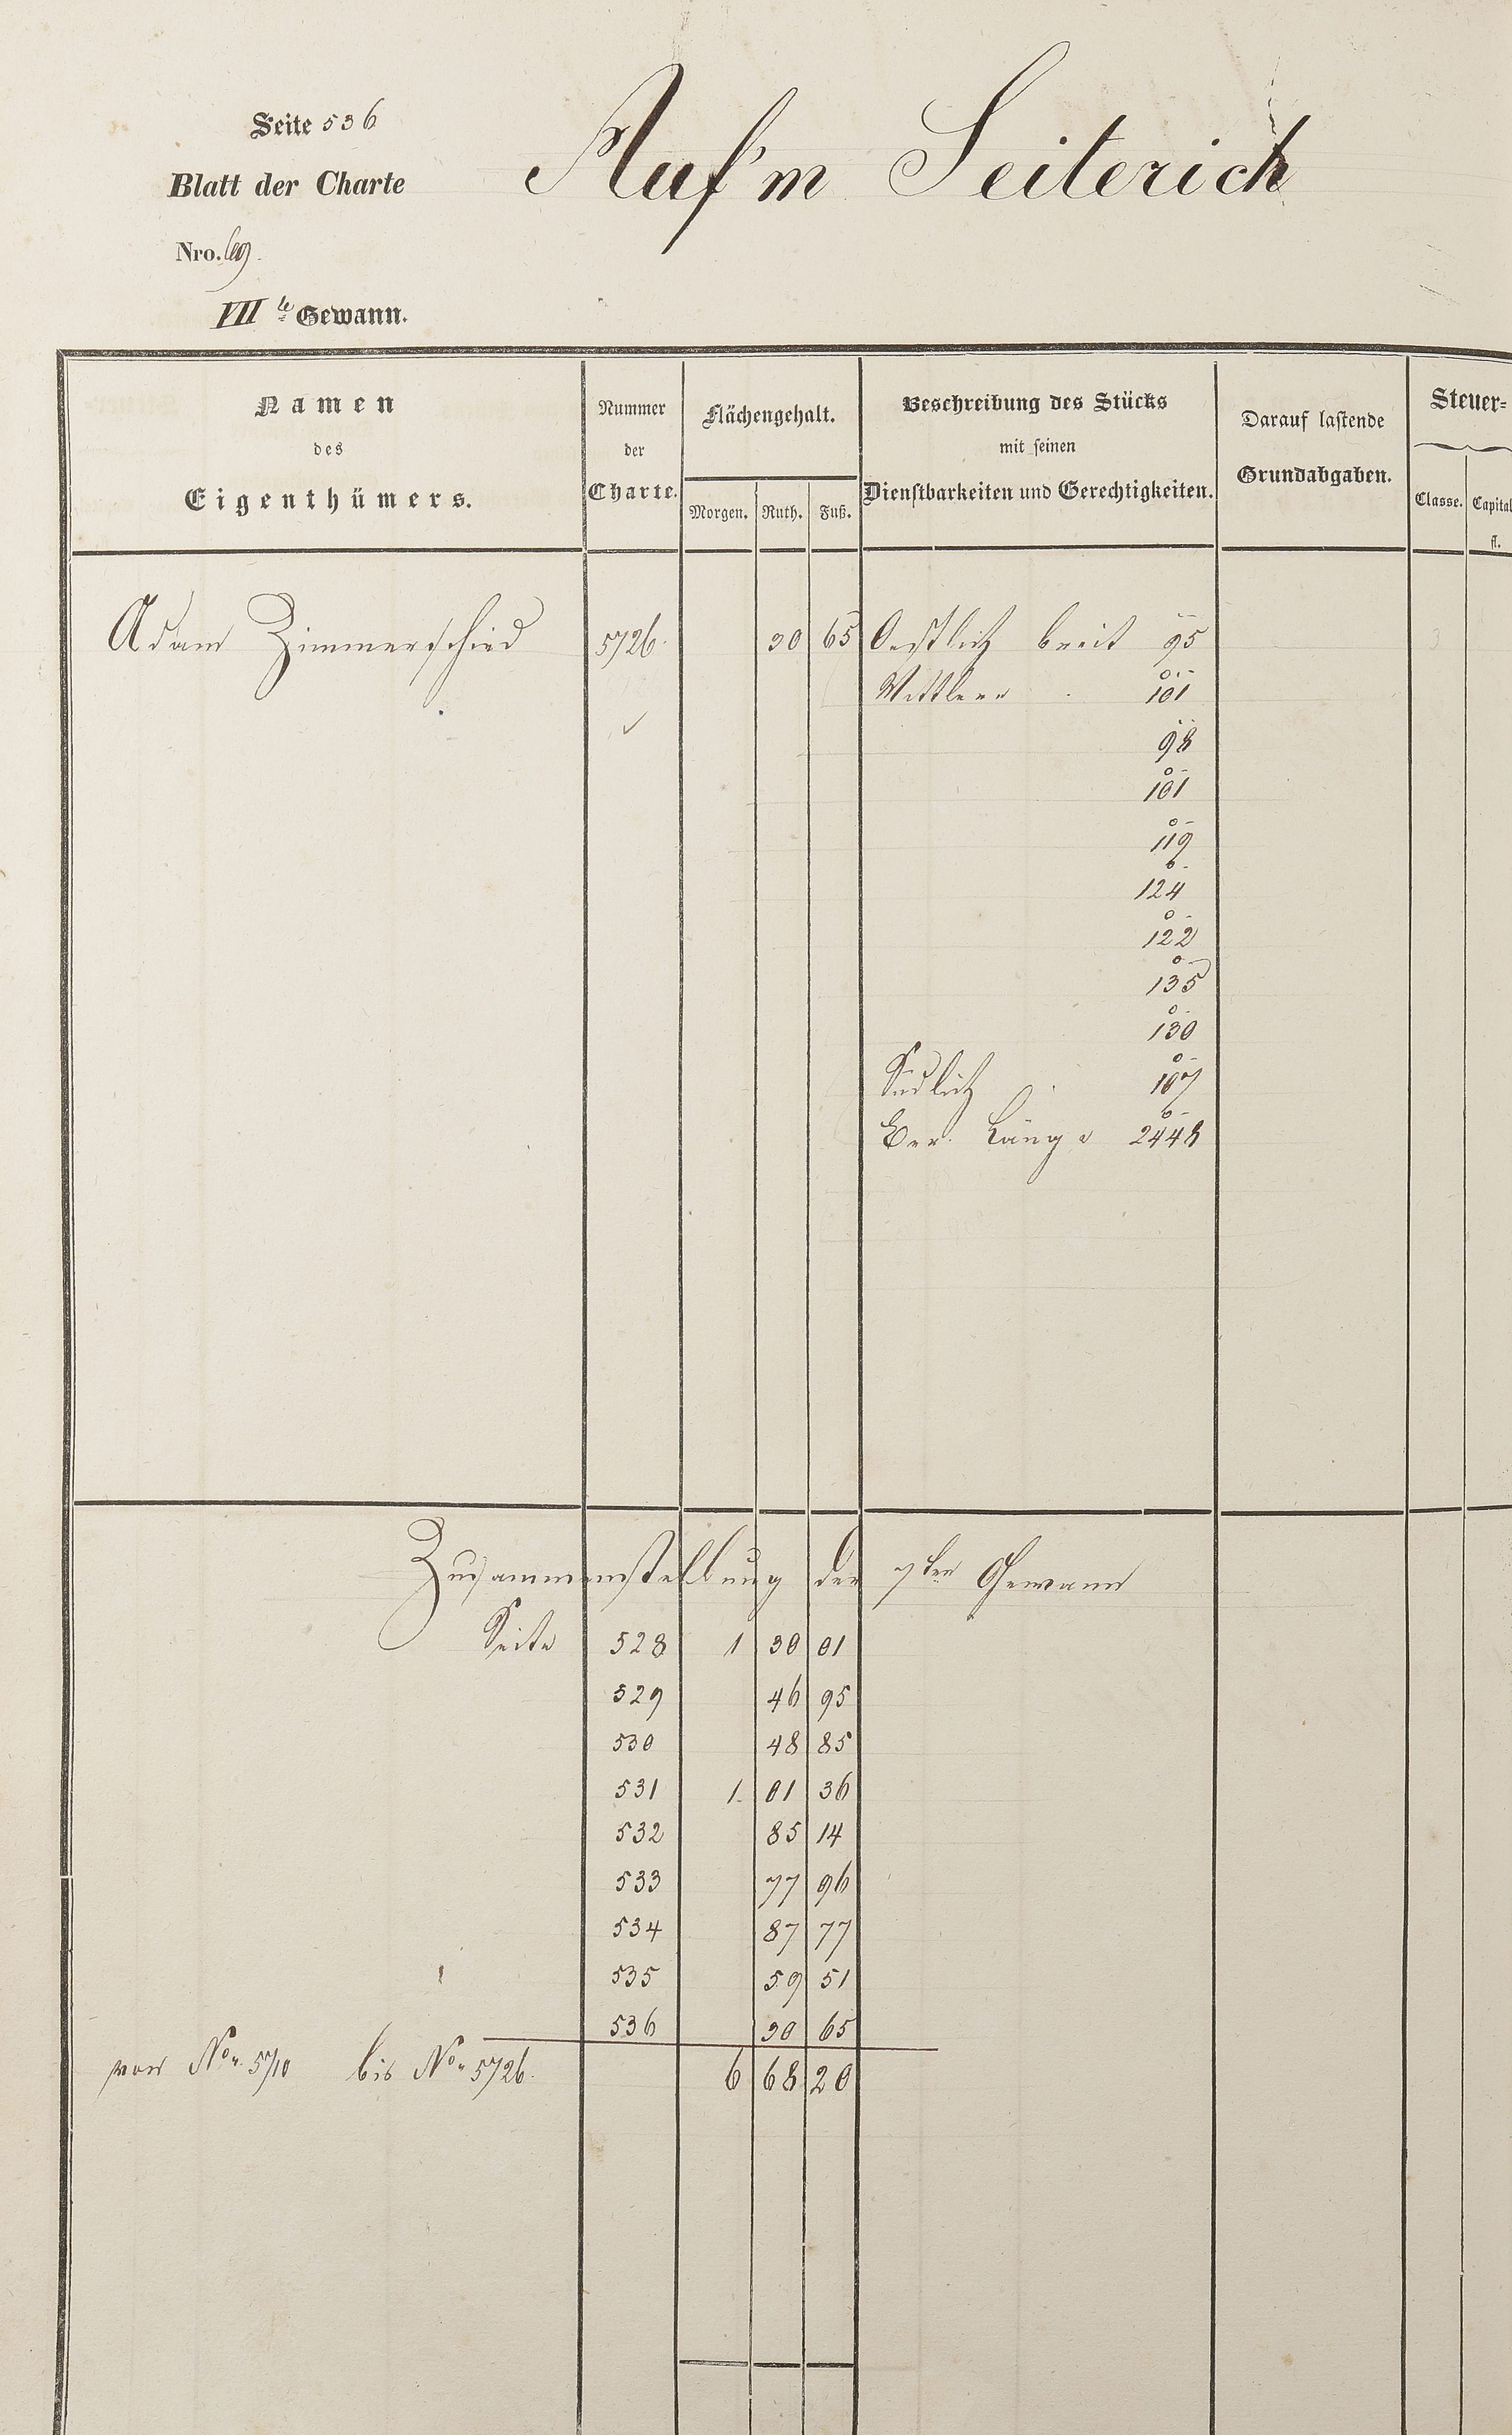 Seite 536
Auf'm Seiterich
Blatt der Charte
Nro. 69.
VII te Gewann.
Namen des Eigenthümers.
Nummer der Charte.
Flächengehalt.
Morgen. Ruth. Fuß.
Beschreibung des Stücks
mit seinen
Dienstbarkeiten und Gerechtigkeiten.
Darauf lastende
Grundabgaben.
Steuer=
Classe. Capital
fl.
Adam Zimmerschied 5726. 30 65 Oestlich breit 95
Mittlere 101
98
101
119
124
122
135
130
Südlich 107
Länge 2448
3
Zusammenstellung der 7ten Gewann
Seite 528 1 30 01
529 46 95
530 48 85
531 1. 01 36
532 85 14
533 77 96
534 87 77
535 59 51
536 30 65
von No. 5710 bis No. 5726. 6 68 20